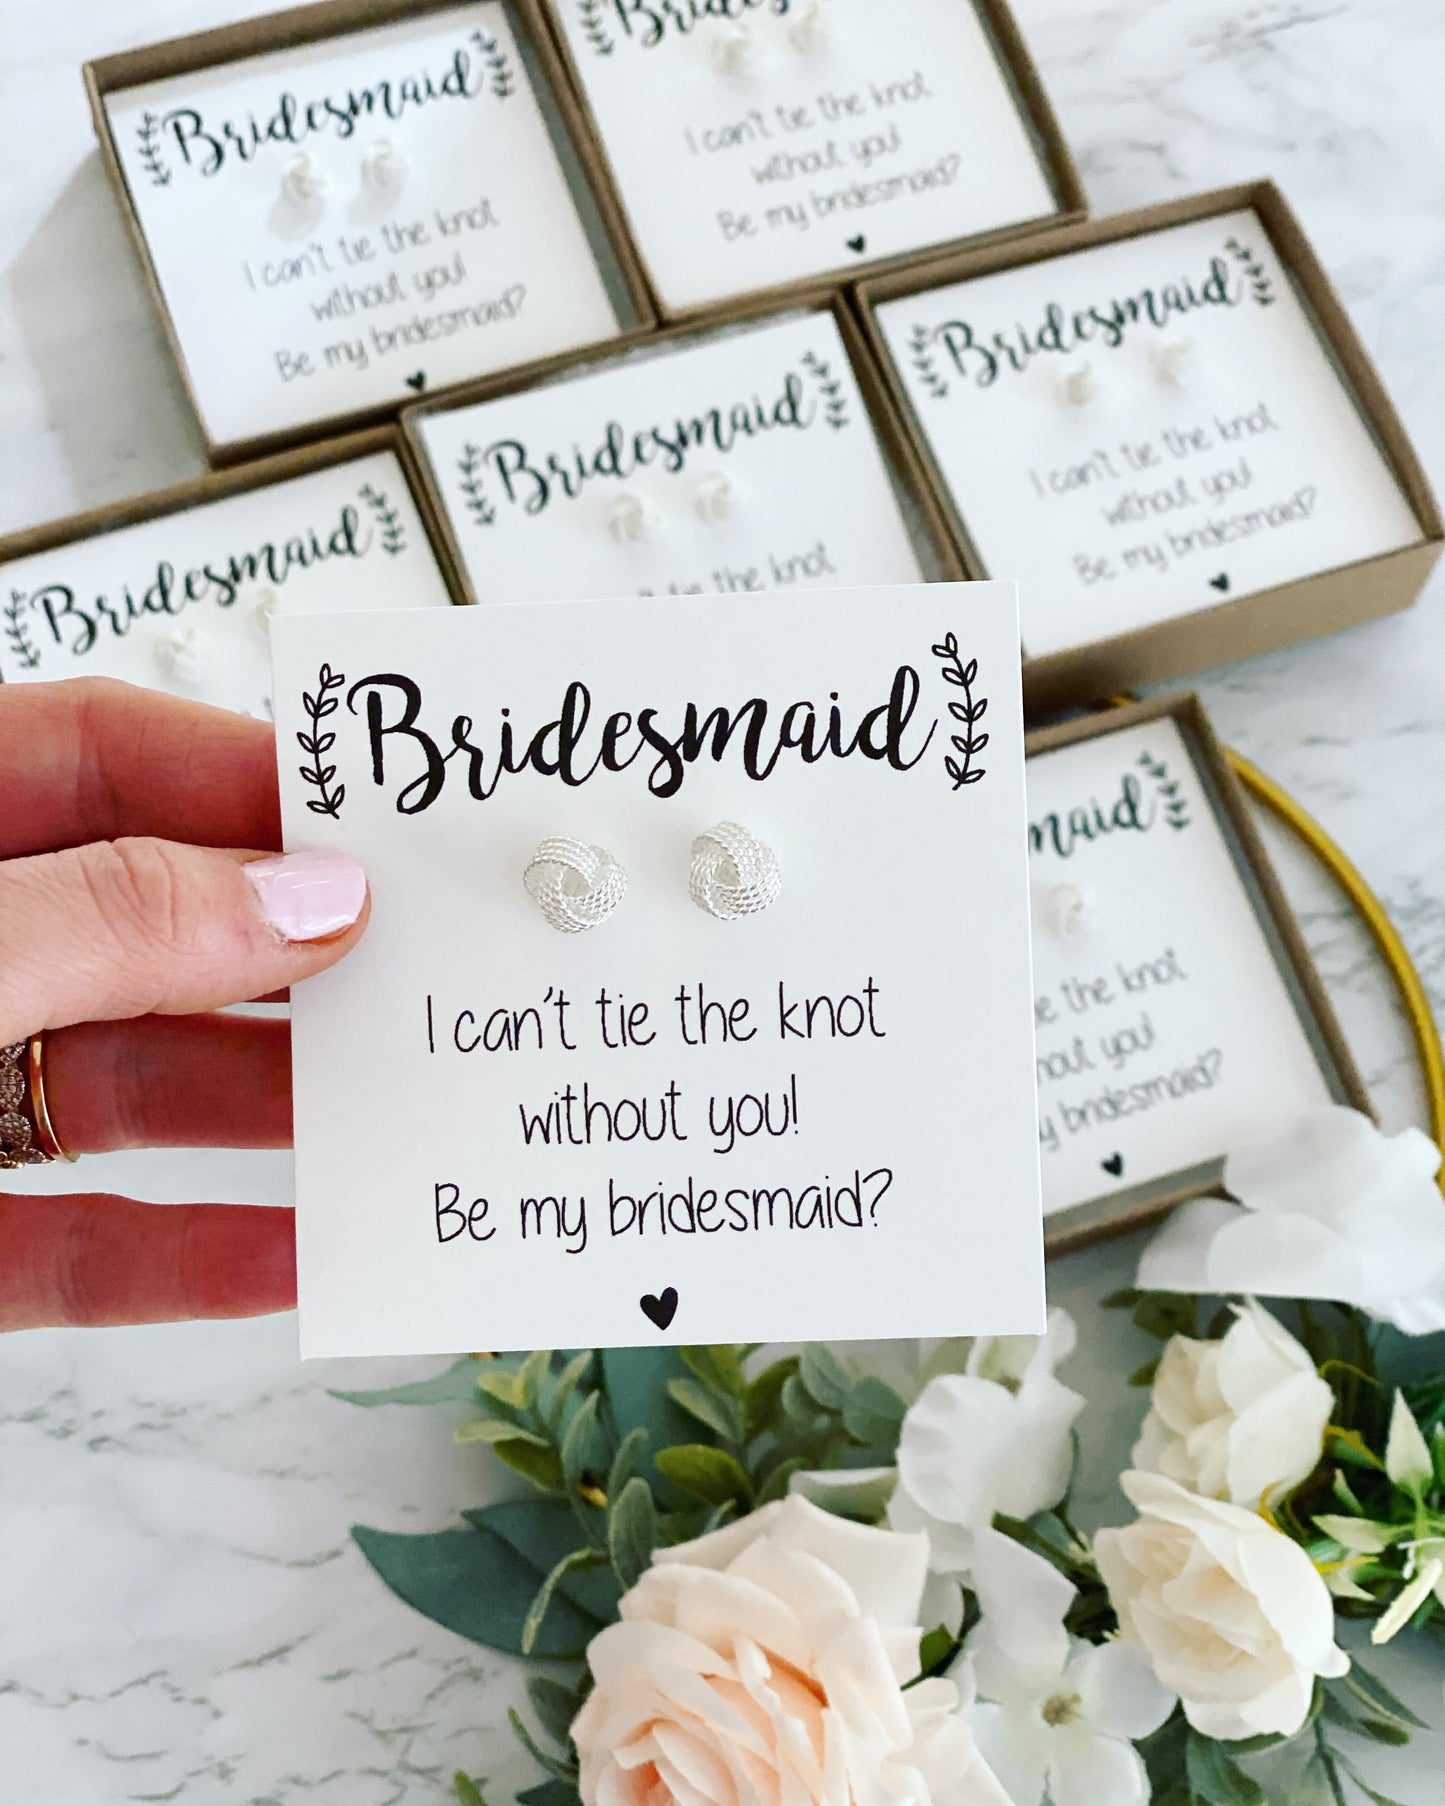 Bridesmaid
I can't tie the knot
without you!
Be my bridesmaid?
Bridesmaid
I can't tie the knot
without you!
Be my bridesmaid?
Bridesmaid
I can't tie the knot
without you!
Be my bridesmaid?
Bridesmaid
Bridesmaid
tie the knot
Bridesmaid
I can't tie the knot
without you!
Be my bridesmaid?
the knot
you!
bridesmaid?